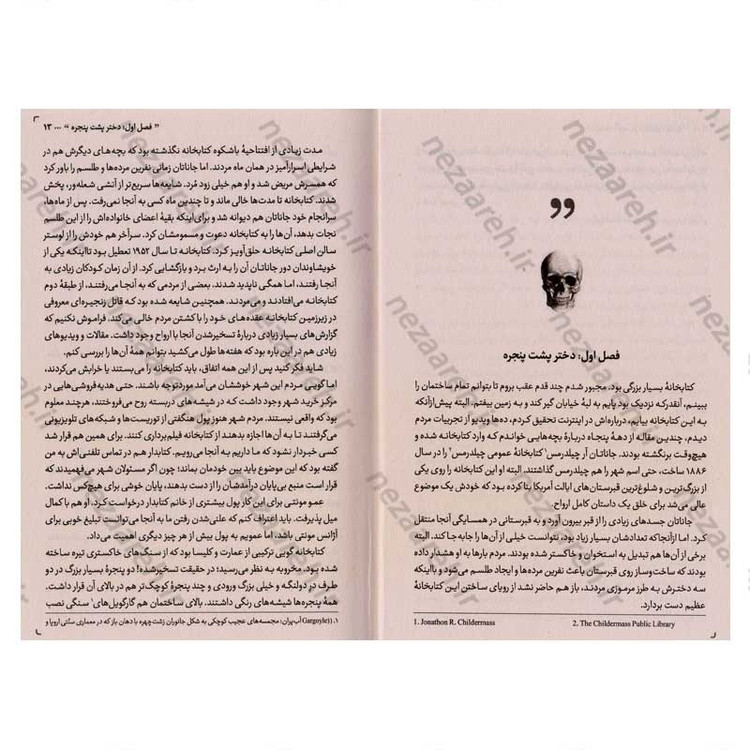 ”
فصل اول: دختر پشت پنجره
کتابخانهٔ بسیار بزرگی بود. مجبور شدم چند قدم عقب بروم تا بتوانم تمام ساختمان را
ببینم. آنقدر که نزدیک بود پایم به لبهٔ خیابان گیر کند و به زمین بیفتم. البته پیش‌از‌آنکه
به این کتابخانه بیایم، درباره‌اش در اینترنت تحقیق کردم، ده‌ها ویدیو از تجربیات مردم
دیدم، چندین مقاله از دههٔ پنجاه دربارهٔ بچه‌هایی خواندم که وارد کتابخانه شده و
هیچ‌وقت برنگشته بودند. جاناتان آر چیلدرمس¹ کتابخانهٔ عمومی چیلدرمس² را در سال
۱۸۸۶ ساخت، حتی اسم شهر را هم چیلدرمس گذاشتند. البته او این کتابخانه را روی یکی
از بزرگ‌ترین و شلوغ‌ترین قبرستان‌های ایالت آمریکا بنا کرده بود که خودش یک موضوع
عالی می‌شد برای خلق یک داستان کامل ارواح.
جاناتان جسدهای زیادی را از قبر بیرون آورد و به قبرستانی در همسایگی آنجا منتقل
کرد. اما ازآنجاکه تعدادشان بسیار زیاد بود، نتوانست خیلی از آن‌ها را جابه‌جا کند. البته
برخی از آن‌ها هم تبدیل به استخوان و خاکستر شده بودند. مردم بارها به او هشدار داده
بودند که ساخت‌وساز روی قبرستان باعث نفرین مرده‌ها و ایجاد طلسم می‌شود و بااینکه
سه دخترش به طرز مرموزی مردند، باز هم حاضر نشد از رویای ساختن این کتابخانهٔ
عظیم دست بردارد.
1. Jonathon R. Childermass
2. The Childermass Public Library
” فصل اول: دختر پشت پنجره “ ... ۱۳
مدت زیادی از افتتاحیهٔ باشکوه کتابخانه نگذشته بود که بچه‌های دیگرش هم در
شرایطی اسرارآمیز در همان ماه مردند. اما جاناتان زمانی نفرین مرده‌ها و طلسم را باور کرد
که همسرش مریض شد و او هم خیلی زود مُرد. شایعه‌ها سریع‌تر از آتشی شعله‌ور، پخش
شدند. کتابخانه تا مدت‌ها خالی ماند و تا چندین ماه کسی به آنجا نمی‌رفت. پس از ماه‌ها،
سرانجام خود جاناتان هم دیوانه شد و برای‌اینکه بقیهٔ اعضای خانواده‌اش را از این طلسم
نجات بدهد، آن‌ها را به کتابخانه دعوت و مسمومشان کرد. سرآخر هم خودش را از لوستر
سالن اصلی کتابخانه حلق‌آویز کرد. کتابخانه تا سال ۱۹۵۲ تعطیل بود تااینکه یکی از
خویشاوندان دور جاناتان آن را به ارث برد و بازگشایی کرد. از آن زمان کودکان زیادی به
آنجا رفتند، اما همگی ناپدید شدند. بعضی از مردمی که به آنجا می‌رفتند، از طبقهٔ دوم
کتابخانه می‌افتادند و می‌مردند. همچنین شایعه شده بود که قاتل زنجیره‌ای معروفی
در زیرزمین کتابخانه عقده‌های خود را با کشتن مردم خالی می‌کند. فراموش نکنیم که
گزارش‌های بسیار زیادی دربارهٔ تسخیرشدن آنجا با ارواح وجود داشت. مقالات و ویدیوهای
زیادی هم در این باره بود که هفته‌ها طول می‌کشید بتوانم همهٔ آن‌ها را بررسی کنم.
شاید فکر کنید پس از این همه اتفاق، باید کتابخانه را می‌بستند یا خرابش می‌کردند،
اما گویی مردم این شهر خوششان می‌آمد موردتوجه باشند. حتی هدیه‌فروشی‌هایی در
مرکز خرید شهر وجود داشت که در شیشه‌های دربسته روح می‌فروختند، هرچندمعلوم
بود که واقعی نیستند. مردم شهر هنوز پول هنگفتی از توریست‌ها و شبکه‌های تلویزیونی
می‌گرفتند تا به آن‌ها اجازه بدهند از کتابخانه فیلم‌برداری کنند. برای همین هم قرار شد
کسی خبردار نشود که ما داریم به آنجا می‌رویم. کتابدار هم در تماس تلفنی‌اش به من
گفته بود که این موضوع باید بین خودمان بماند؛ چون اگر مسئولان شهر می‌فهمیدند که
قرار است منبع بی‌پایان درآمدشان را از دست بدهند، پایان خوشی برای هیچ‌کس نداشت.
عمو مونتی برای این کار پول بیشتری از خانم کتابدار درخواست کرد. او هم با کمال
میل پذیرفت. باید اعتراف کنم که علنی‌شدن رفتن ما به آنجا می‌توانست تبلیغ خوبی برای
آژانس مونتی باشد، اما عمویم به پول بیش از هر چیز دیگری اهمیت می‌داد.
کتابخانه گویی ترکیبی از عمارت و کلیسا بود که از سنگ‌های خاکستری تیره ساخته
شده بود. مخروبه به نظر می‌رسید؛ در حقیقت تسخیرشده! دو پنجرهٔ بسیار بزرگ در دو
طرف درِ دولنگه و خیلی بزرگ ورودی و چند پنجرهٔ کوچک‌تر هم در بالای آن قرار داشت.
همهٔ پنجره‌ها شیشه‌های رنگی داشتند. بالای ساختمان هم گارگویل‌های¹ سنگی نصب
۱. (Gargoyle) آب‌پران: مجسمه‌های عجیب کوچکی به شکل جانوران زشت‌چهره با دهان باز که در معماری سنتی اروپا و
nezaareh.ir